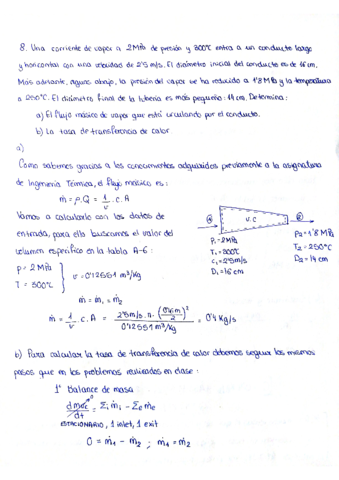 8. Una corriente de vapor a 2MPa de presión y 300°C entra a un conducto largo
y horizontal con una velocidad de 2'5 m/s. El diámetro inicial del conducto es de 16 cm.
Más adelante, aguas abajo, la presión del vapor se ha reducido a 1'8 MPa y la temperatura
a 250°C. El diámetro final de la tubería es más pequeño: 14 cm. Determina:
a) El flujo másico de vapor que está circulando por el conducto.
b) La tasa de transferencia de calor.
a)
Como sabemos gracias a los conocimientos adquiridos previamente a la asignatura
de Ingeniería Térmica, el flujo másico es:
ṁ = ρ.Q = 1/v . C . A
Vamos a calcularlo con los datos de
entrada, para ello buscamos el valor del
volumen específico en la tabla A-6:
① V.C ②
P₁ = 2MPa
T₁ = 300°C
C₁ = 2'5m/s
D₁ = 16 cm
P₂ = 1'8 MPa
T₂ = 250°C
D₂ = 14 cm
P = 2MPa
T = 300°C } v = 0'12551 m³/kg
ṁ = ṁ₁ = ṁ₂
ṁ = 1/v . C . A = 2'5m/s . π . (0'16m/2)² / 0'12551 m³/kg = 0'4 Kg/s
b) Para calcular la tasa de transferencia de calor debemos seguir los mismos
pasos que en los problemas realizados en clase:
1° Balance de masa:
dmvc/dt = Σᵢ ṁᵢ - Σₑ ṁₑ
ESTACIONARIO, 1 inlet, 1 exit
0 = ṁ₁ - ṁ₂ ; ṁ₁ = ṁ₂